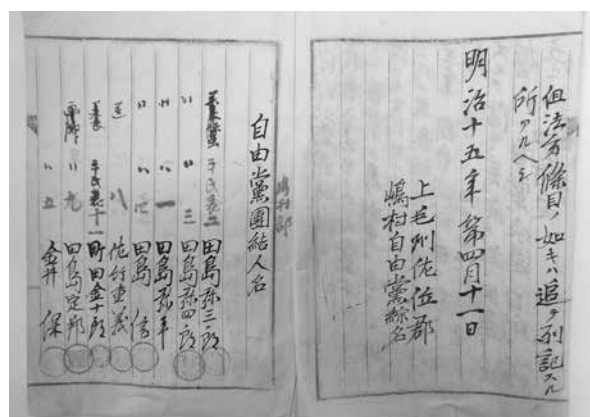 但法方條目ノ如キハ追テ列記スル
所アルヘシ
明治十五年第四月十一日
上毛州佐位郡
嶋村自由黨綜名
嶋村部
自由黨團結人名
平民農 二 田島弥三郎
〃 〃 三 田島弥四郎
〃 〃 一 田島弥平
〃 〃 田島信
八 佐竹重義
平民農 十一 町田金十郎
〃 九 田島定邦
〃 五 金井保